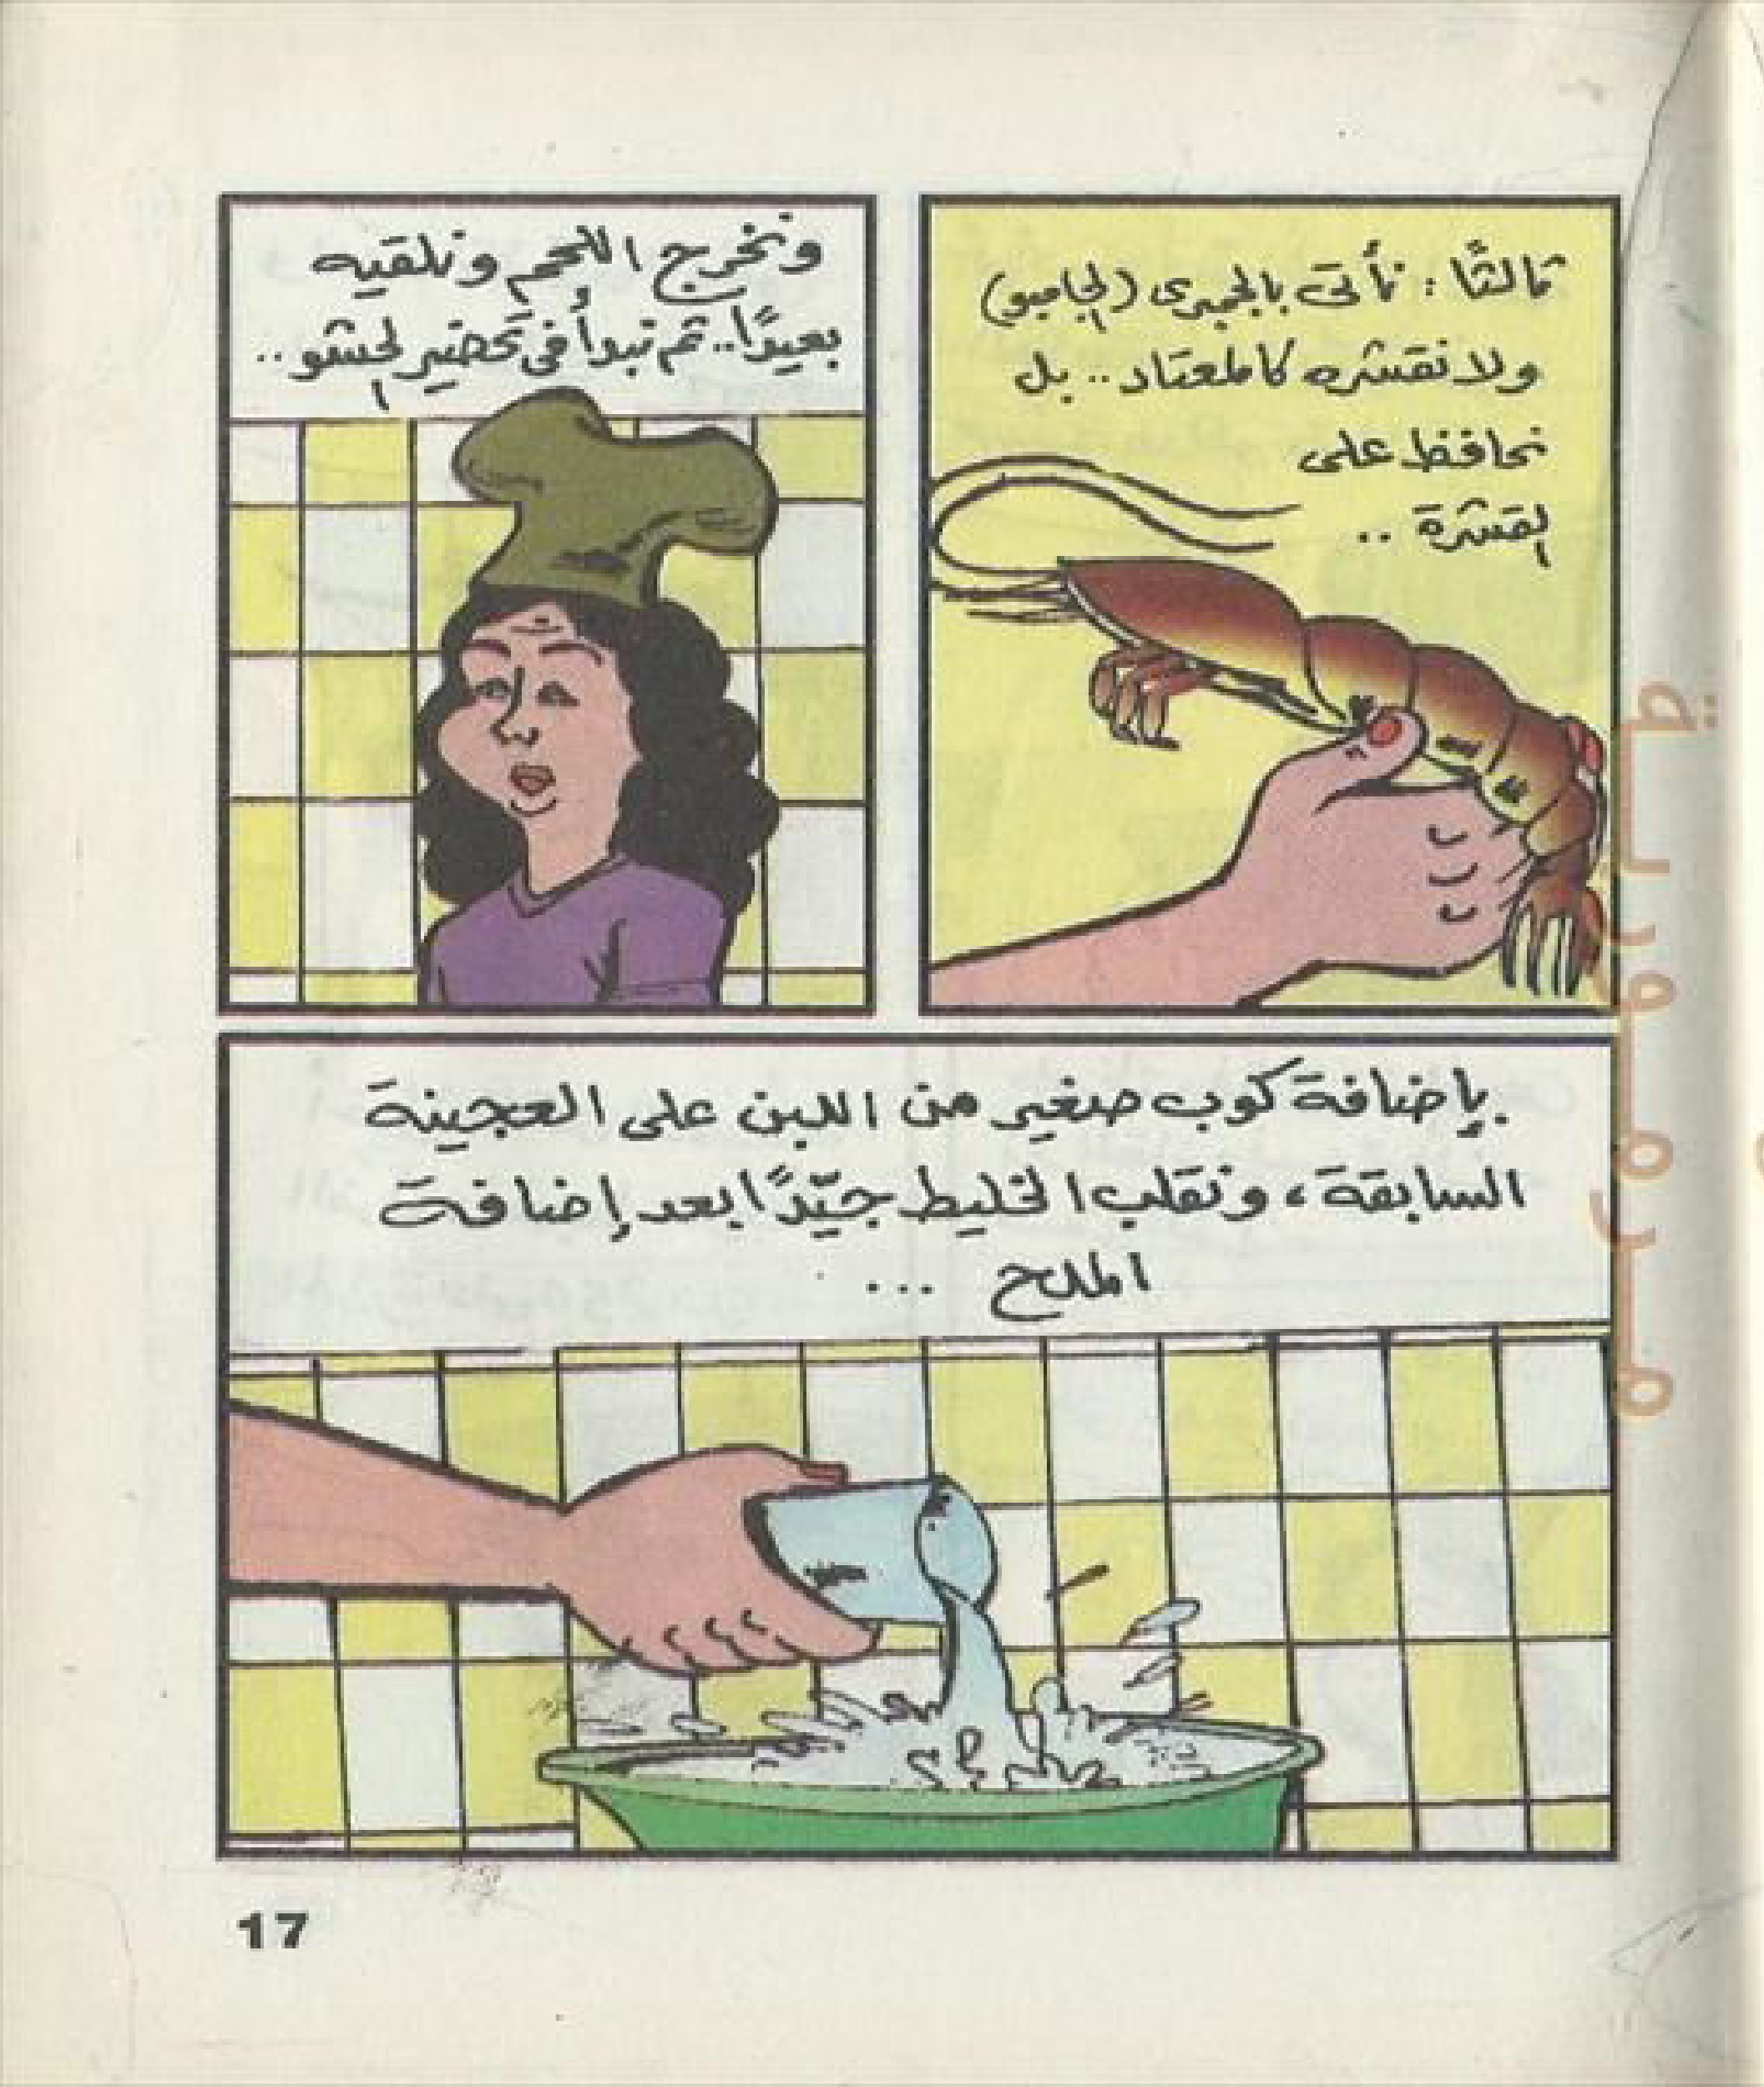 ثالثًا : نأتى بالجمبرى (الجامبو)
ولا نقشره كالمعتاد .. بل
نحافظ على
القشرة ..
ونخرج اللحم ونلقيه
بعيدًا .. ثم نبدأ فى تحضير الحشو ..
بإضافة كوب صغير من اللبن على العجينة
السابقة ، ونقلب الخليط جيّدًا بعد إضافة
الملح ...
17